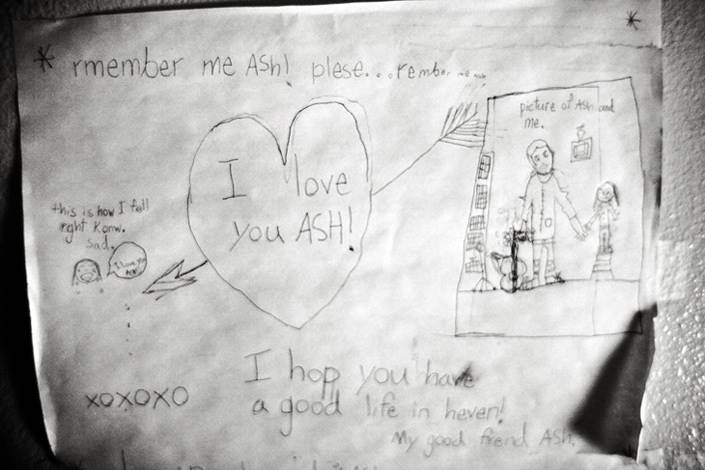 * rmember me ASH! plese...rember me
picture of Ash and
me.
I love
you ASH!
this is how I fell
right
sad.
I love you
ASH!
I hop you have
a good life in heven!
xoxoxo
My good friend ASH.